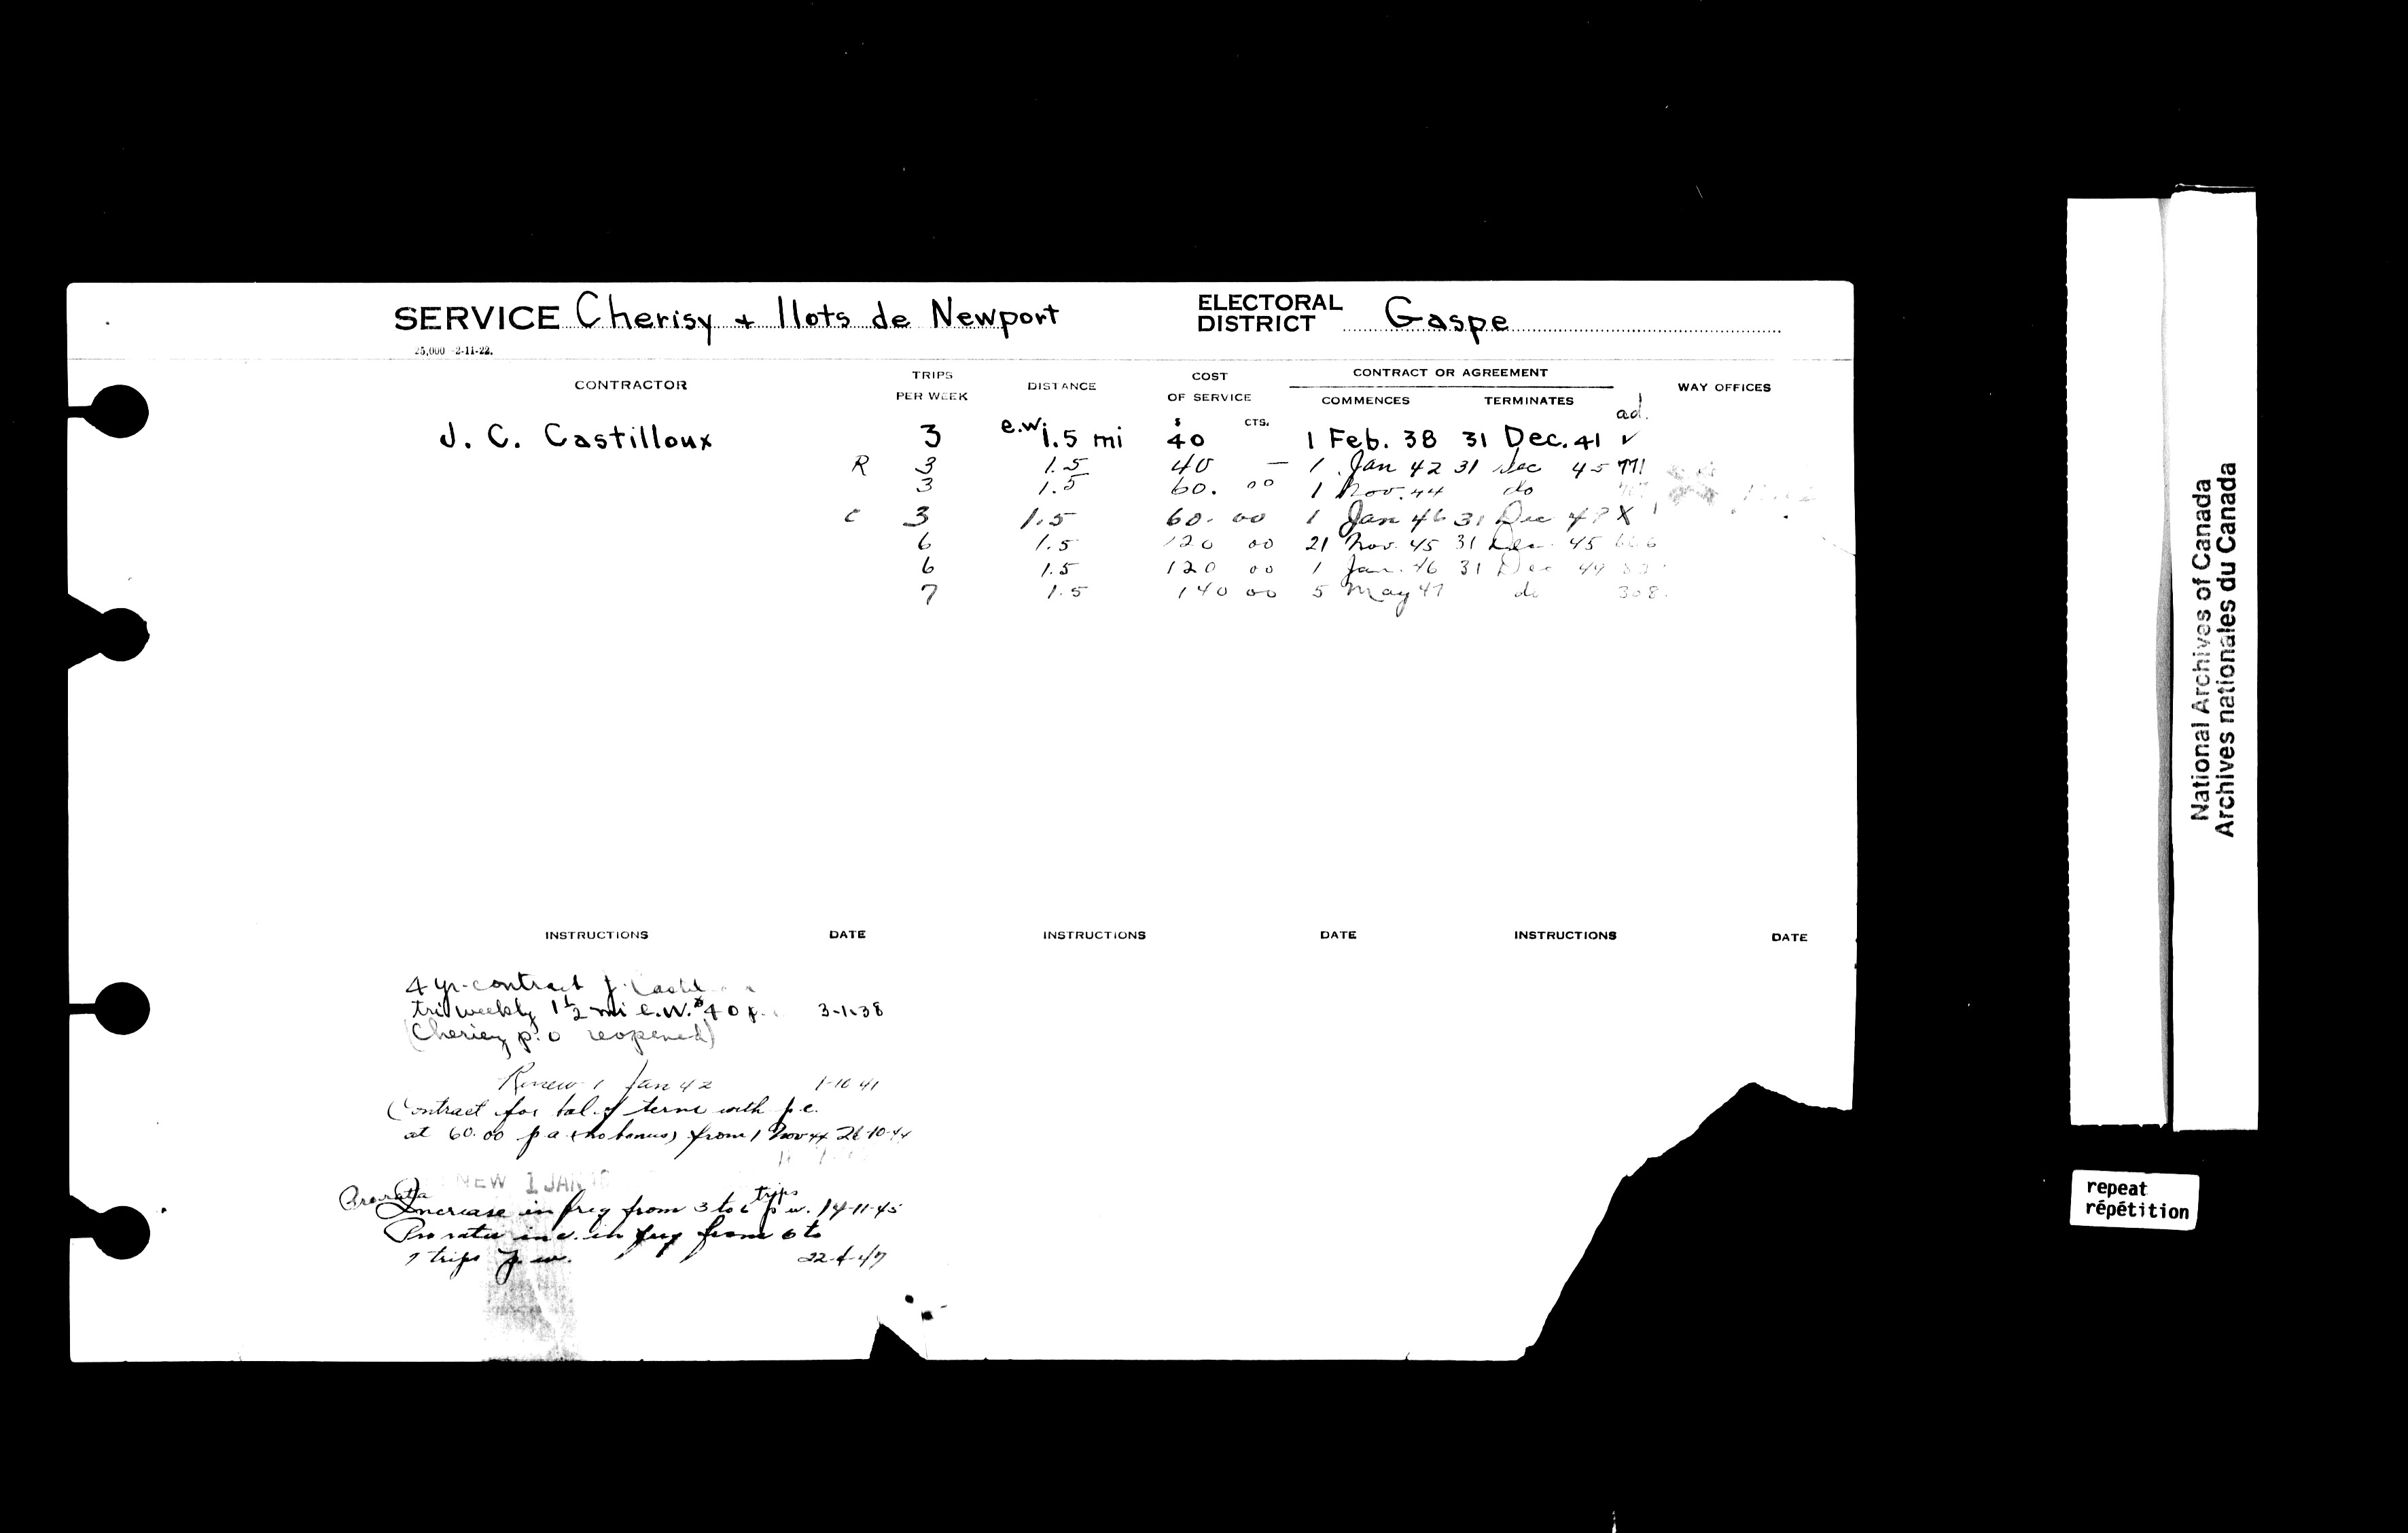 SERVICE Cherisy + Ilots de Newport ELECTORAL DISTRICT Gaspe
25,000 -2-11-22.
CONTRACTOR TRIPS PER WEEK DISTANCE COST OF SERVICE CONTRACT OR AGREEMENT COMMENCES TERMINATES WAY OFFICES
$ CTS. ad.
J. C. Castilloux 3 e.w. 1.5 mi 40 1 Feb. 38 31 Dec. 41 ✓
R 3 1.5 40 — 1 Jan 42 31 Dec 45 771
3 1.5 60. 00 1 Nov. 44 do
C 3 1.5 60. 00 1 Jan 46 31 Dec X
6 1.5 120 00 21 Nov. 45 31 Dec. 45
6 1.5 120 00 1 Jan. 46 31 Dec 49
7 1.5 140 00 5 May 47 do 308.
INSTRUCTIONS DATE INSTRUCTIONS DATE INSTRUCTIONS DATE
4 yr. contract J.
tri weekly 1½ mi e.w. $40 p. 3-1-38
(Cherisy p.o reopened)
Renew 1 Jan 42 1-10 41
Contract for bal. of term with p.c.
at 60.00 p a (no bonus) from 1 Nov 44 26-10-44
NEW 1 JAN
Prorata Increase in freq from 3 to 6 trips p w. 14-11-45
Pro rata inc. in freq from 6 to
7 trips p. w. 22-4-47
National Archives of Canada
Archives nationales du Canada
repeat
répétition